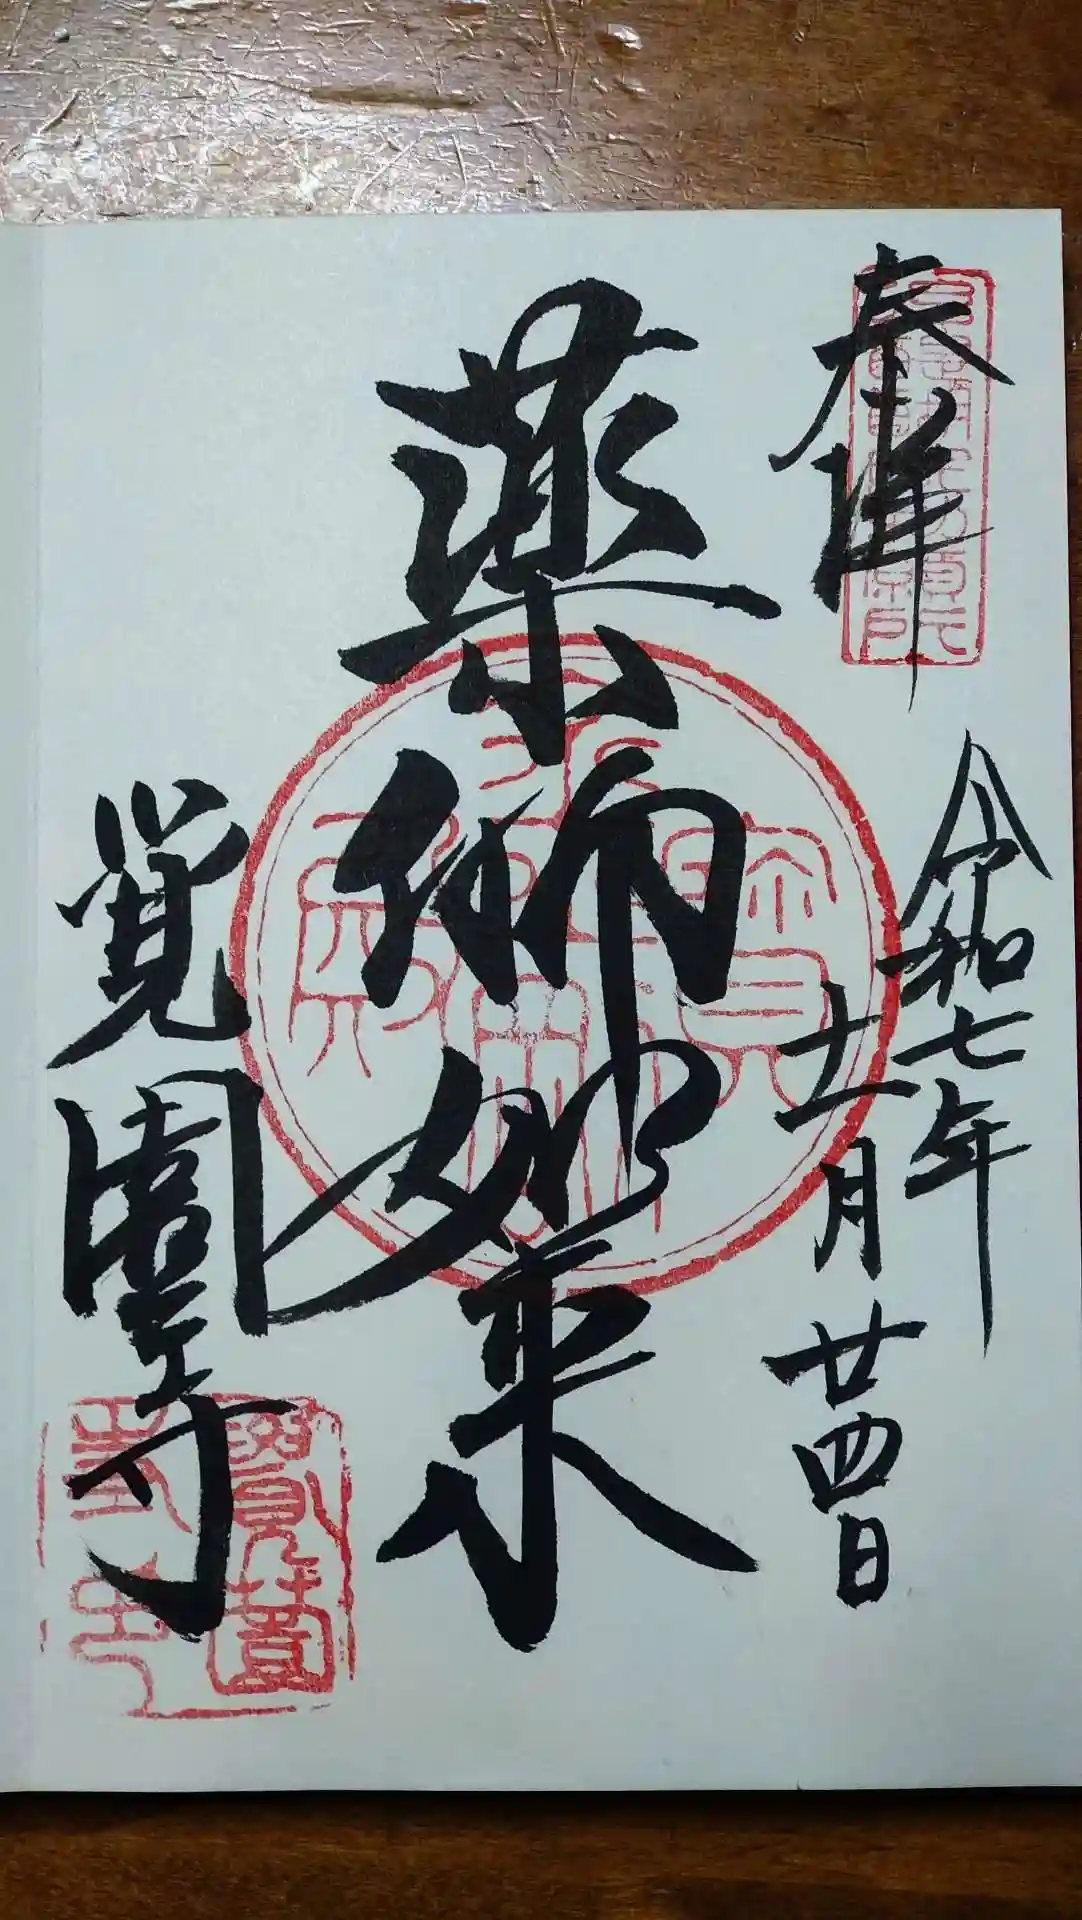 奉拝
令和七年
十一月廿四日
薬師如来
覚園寺
覺園
寺印